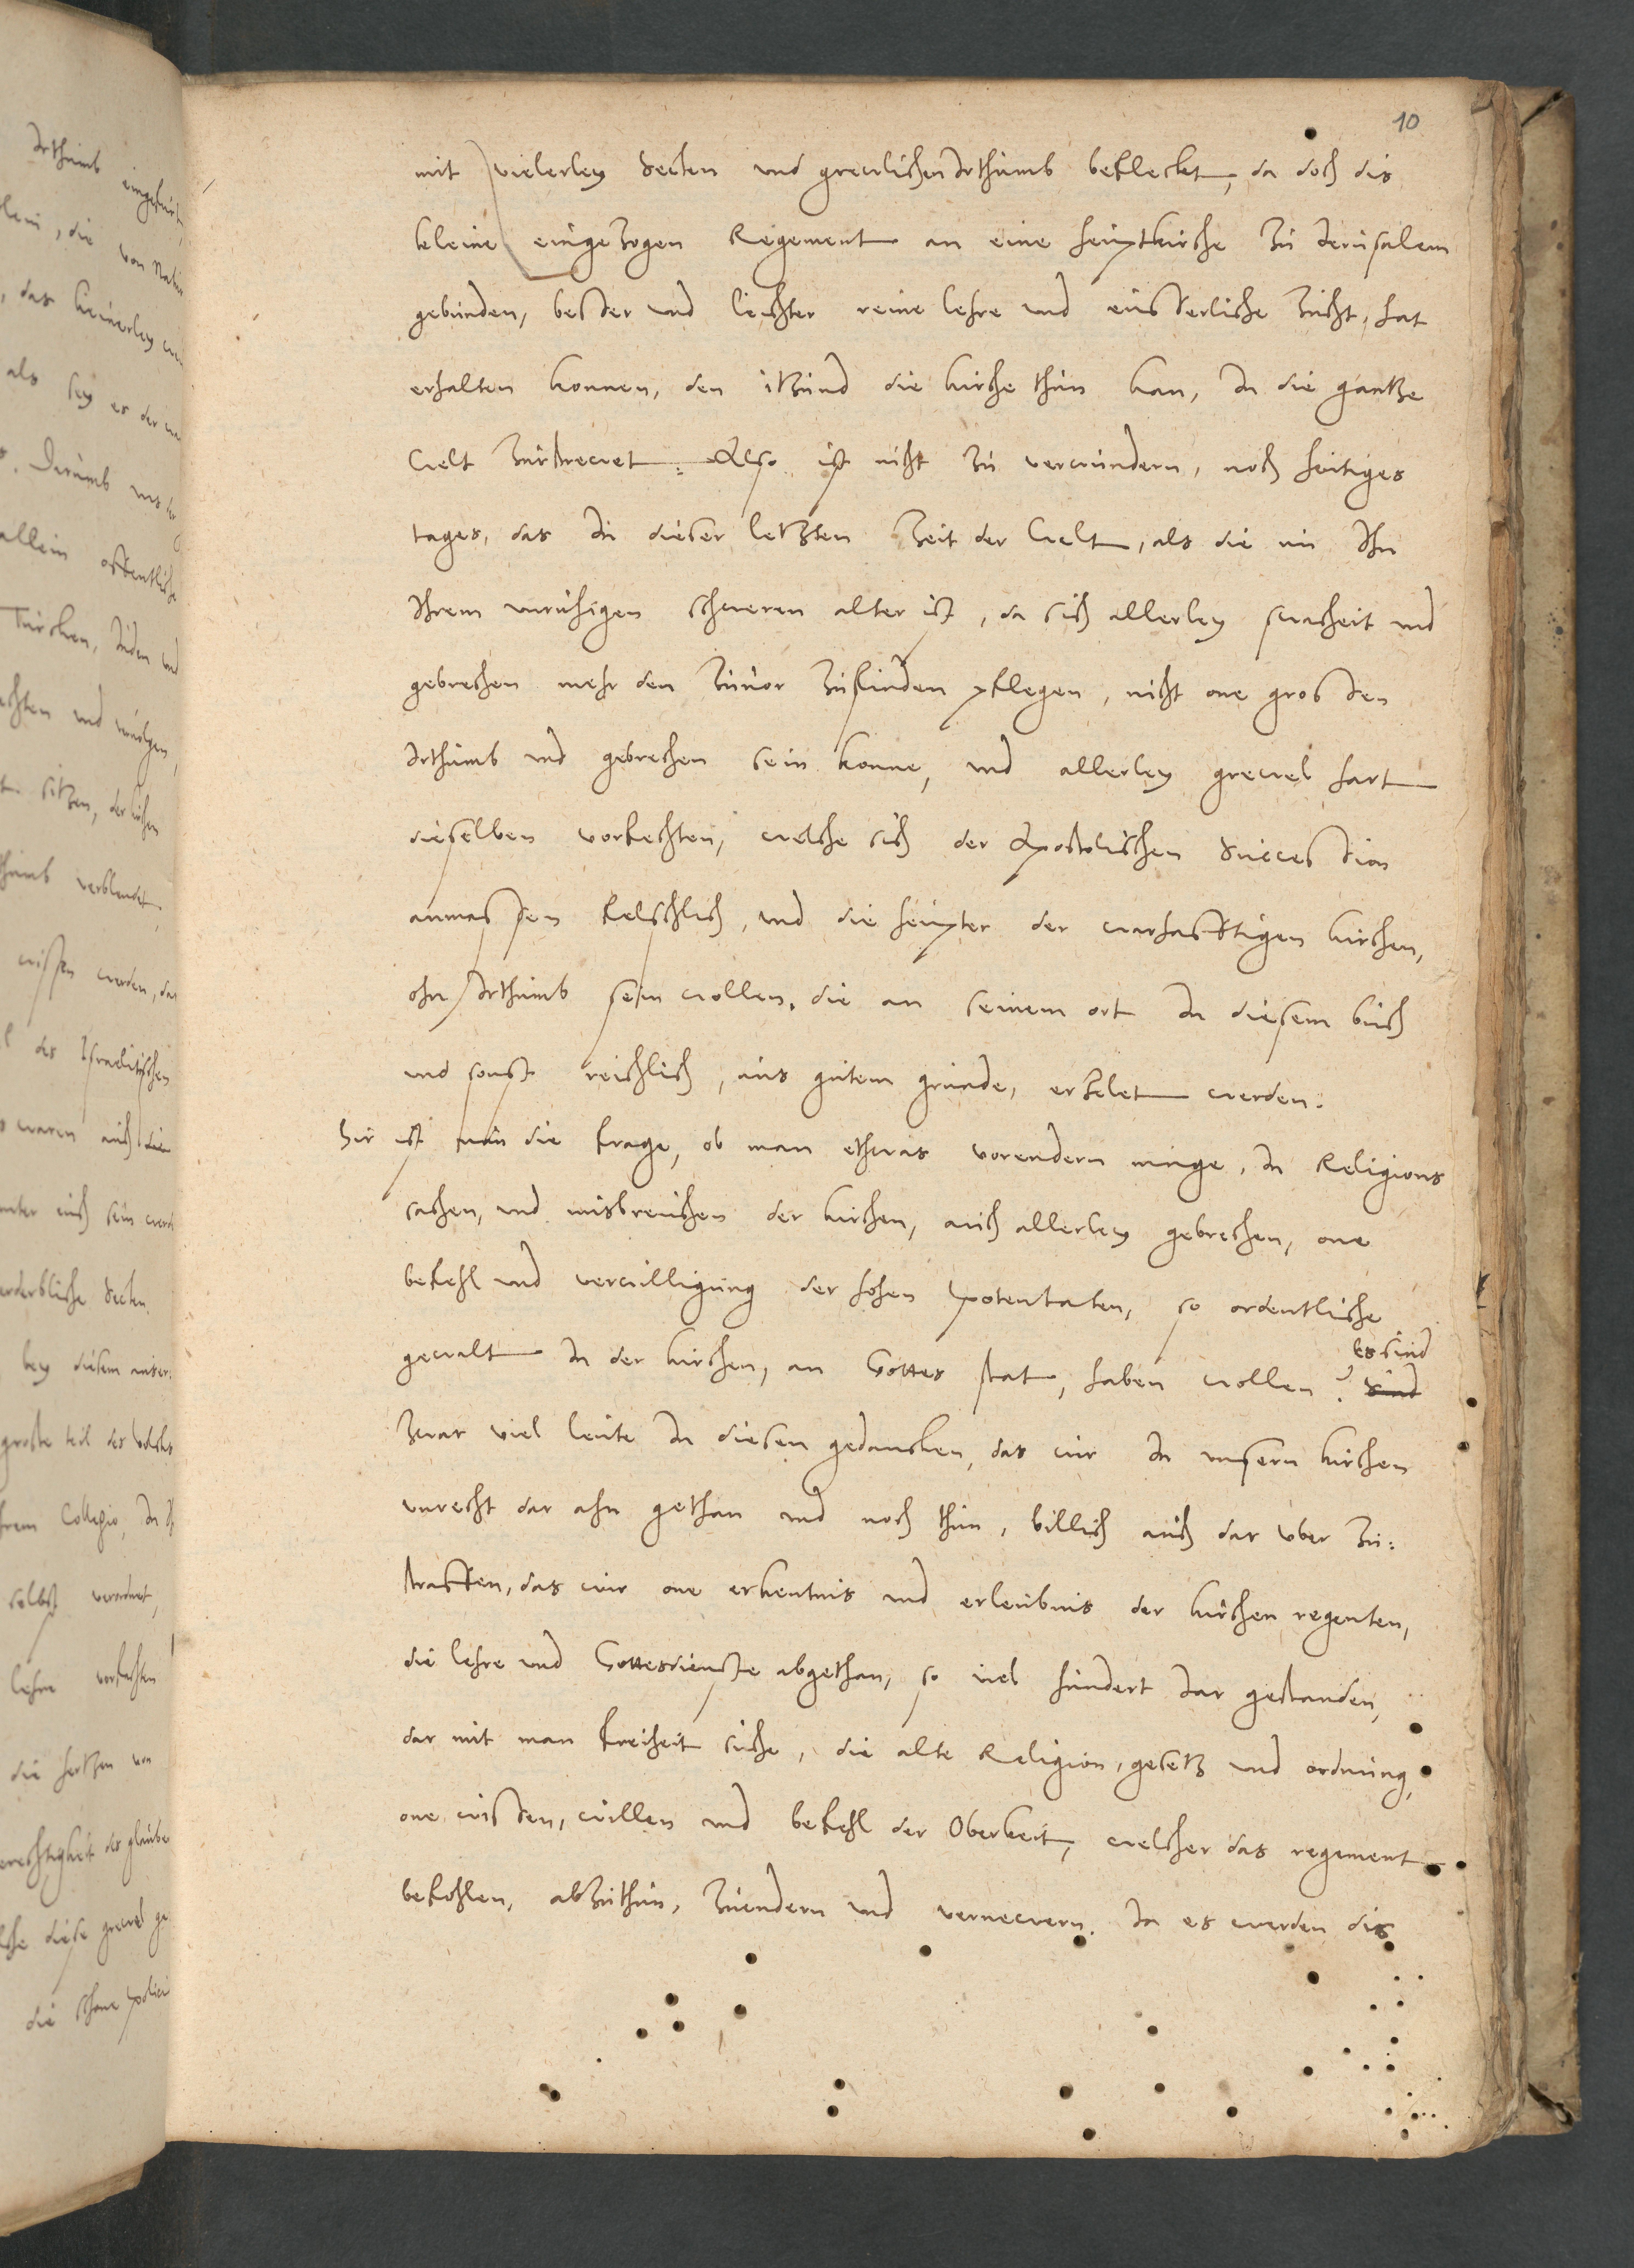 10
mit vielerley Secten und grewlichen Irthumb befleckt, da doch dis
kleine eingezogen Regement an eine heuptkirche zu Jerusalem
gebunden, besser und leichter reine lehre und eusserliche zucht, hat
erhalten konnen, den itzund die kirche thun kan, In die gantze
Welt zurstrewet. Also ist nicht zu verwundern, noch heitiges
tages, das In dieser letzten Zeit der Welt, als die nu Ihn
Ihrem unruhigen schweren alter ist, da sich allerley swacheit und
gebrechen mehr den zuuor zufinden pflegen, nicht one grossen
Irthumb und gebrechen sein konne, und allerley grewel hart
dieselben vorfechten, welche sich der Apostolischen Succession
anmassen felschlich, und die heupter der warhafftigen kirchen,
ohn Irthumb sein wollen, die an seinem ort In diesem buch
und sonst reichlich, aus gutem grunde, erzelet werden.
Hir ist nun die frage, ob man ethwas vorendern muge, In Religions
sachen, und misbreuchen der kirchen, auch allerley gebrechen, one
befehl und verwilligung der hohen potentaten, so ordentliche
gewalt In der kirchen, an Gottes stat, haben wollen? Sind
es sind
zwar viel leute In diesen gedancken, das wir In unsern kirchen
unrecht dar ahn gethan und noch thun, billich auch dar vber zu:
straffen, das wir one erkentnis und erleubnis der kirchen regenten,
die lehre und Gottesdienste abgethan, so viel hundert Iar gestanden,
dar mit man freiheit suche, die alte Religion, gesetz und ordnung,
one wissen, willen und befehl der Oberkeit, welcher das regement
befohlen, abzuthun, zuendern und vernewern. Ia es werden dis